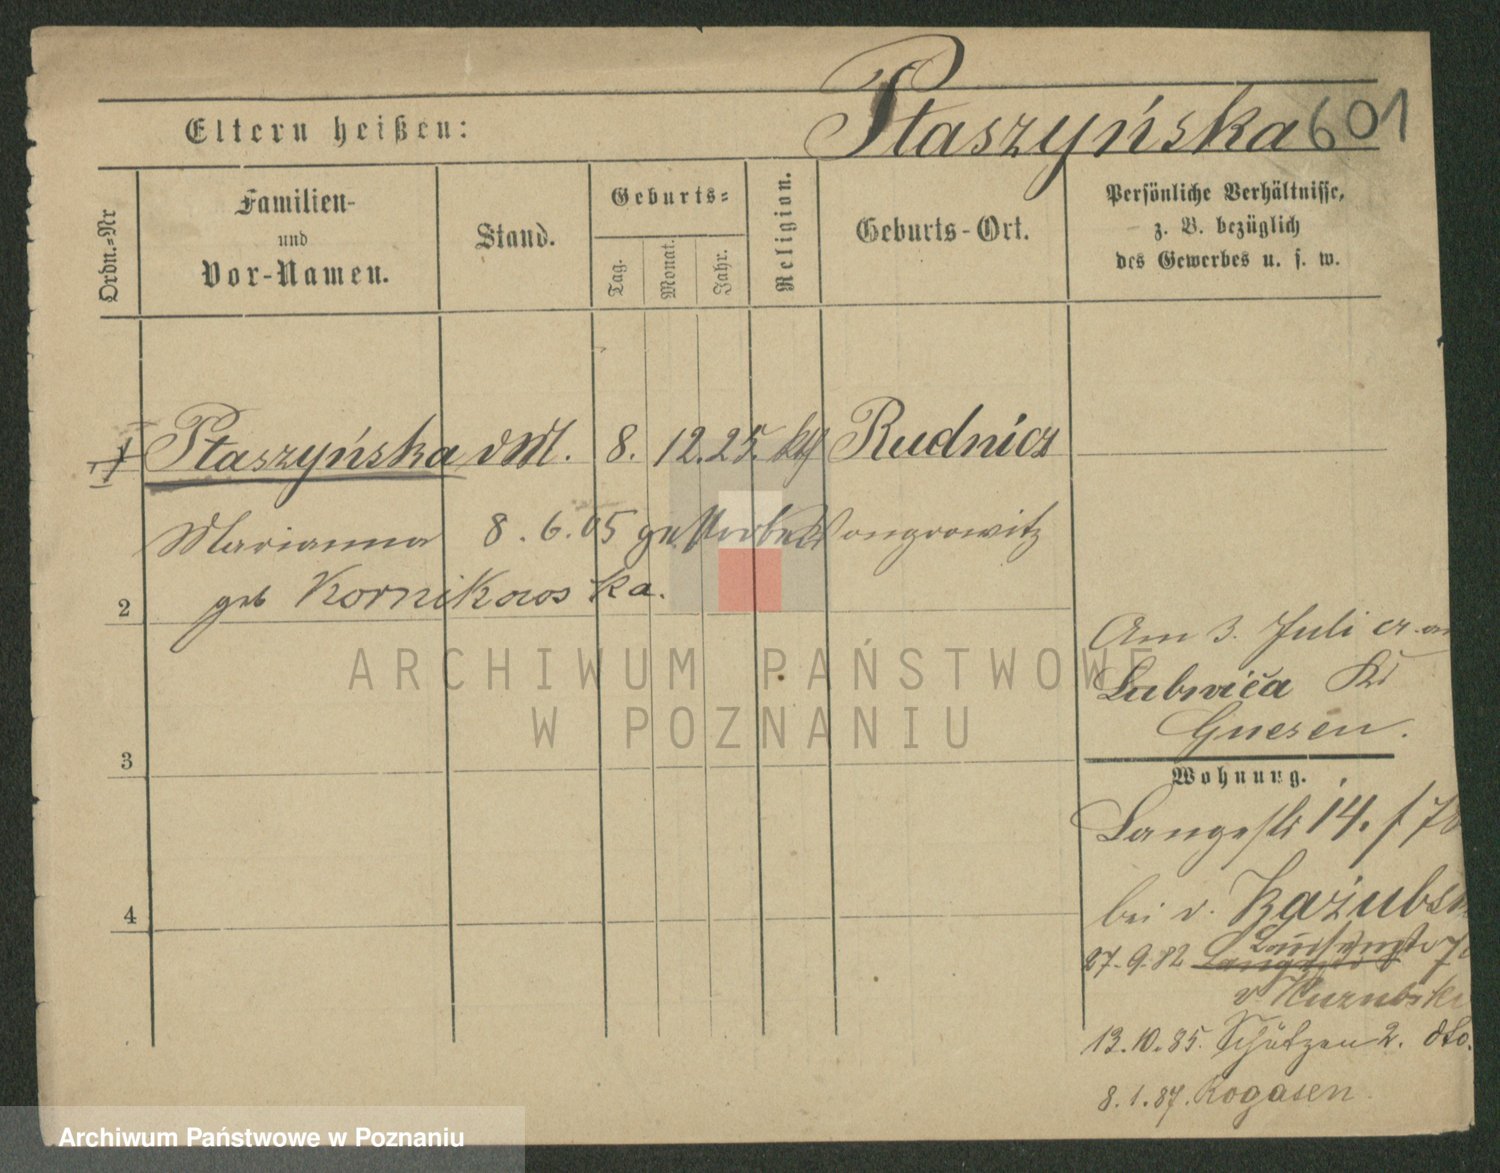 Ptaszyńska 601
Eltern heißen:
Ordn.=Nr
Familien-
und
Vor-Namen.
Stand.
Geburts=
Tag.
Monat.
Jahr.
Religion.
Geburts-Ort.
Persönliche Verhältnisse,
z. B. bezüglich
des Gewerbes u. s. w.
1 Ptaszyńska 8. 12. 25. kth Rudnicz
Marianna 8. 6. 05 Wongrowitz
geb Kornikowska.
2
3
4
Am 3. Juli cr.
Kr
Gnesen.
Wohnung.
Langestr 14.
bei v.
27.9.82
v
13.10.85. Schützen 2. dto.
8.1.87. Rogasen
ARCHIWUM PAŃSTWOWE
W POZNANIU
Archiwum Państwowe w Poznaniu